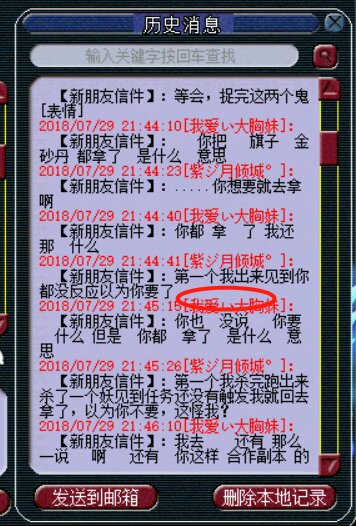 历史消息
输入关键字按回车查找
【新朋友信件】: 等会，捉完这两个鬼
[表情]
2018/07/29 21:44:10[我爱い大胸妹]:
【新朋友信件】: 你把 旗子 金
砂丹 都拿了 是什么 意思
2018/07/29 21:44:23[紫ジ月倾城°]:
【新朋友信件】: .....你想要就去拿
啊
2018/07/29 21:44:40[我爱い大胸妹]:
【新朋友信件】: 你都 拿 了 我还
那 什么
2018/07/29 21:44:41[紫ジ月倾城°]:
【新朋友信件】: 第一个我出来见到你
都没反应以为你要了
2018/07/29 21:45:15[我爱い大胸妹]:
【新朋友信件】: 你也 没说 你要
什么 但是 你都 拿了 是什么 意
思
2018/07/29 21:45:26[紫ジ月倾城°]:
【新朋友信件】: 第一个我杀完跑出来
杀了一个妖见到任务还没有触发我就回去
拿了，以为你不要，这怪我？
2018/07/29 21:46:10[我爱い大胸妹]:
【新朋友信件】: 我去 还有 那么
一说 啊 还有 你这样 合作副本 的
发送到邮箱
删除本地记录